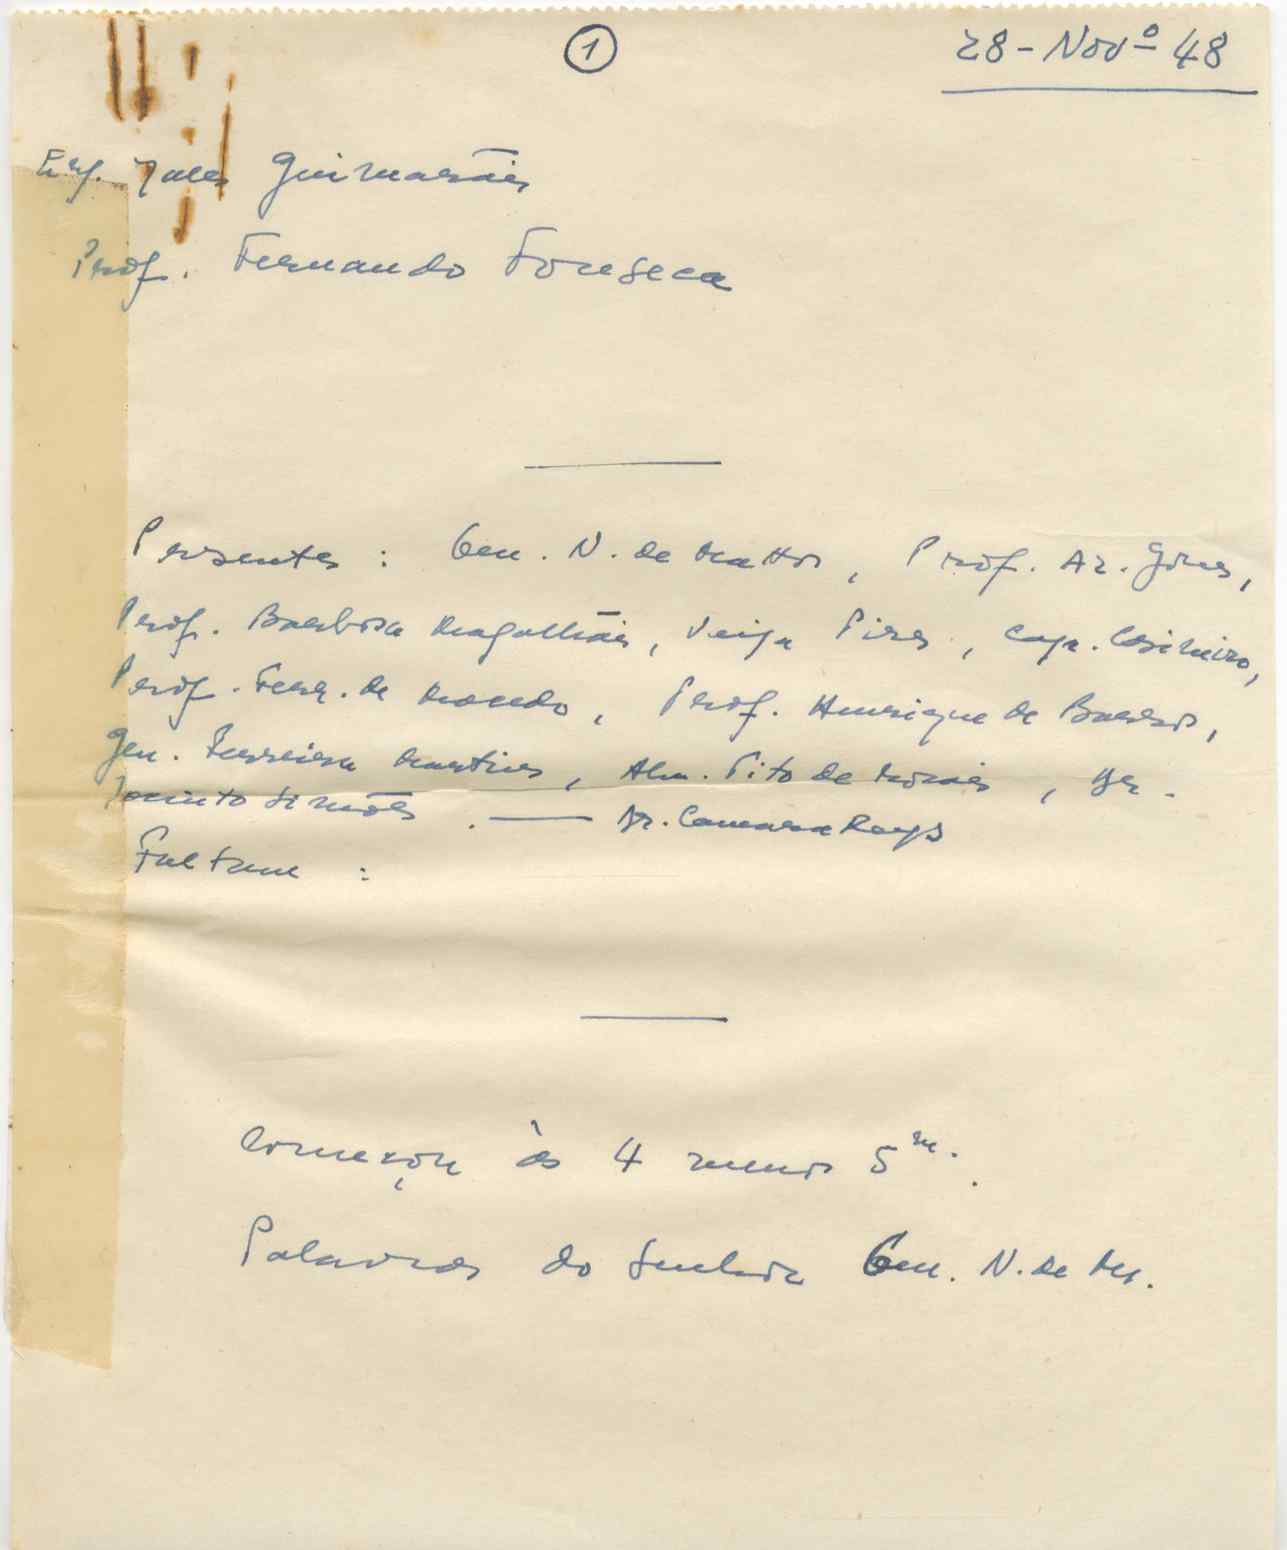 ①
28 - Novº 48
Eng. Guimarãis
Prof. Fernando Fonseca
Presentes : Gen. N. de Mattos, Prof. Az. Gomes,
Prof. Barbosa Magalhãis, Veiga Pires, Cap. Casimiro,
Prof. Ferr. de Macedo, Prof. Henrique de Barros,
Gen. Ferreira Martins, Alm. Tito de Morais, Dr.
Jacinto Simões. — Dr. Camara Reys
Faltam :
Começou às 4 menos 5 m.
Palavras do Senhor Gen. N. de M.